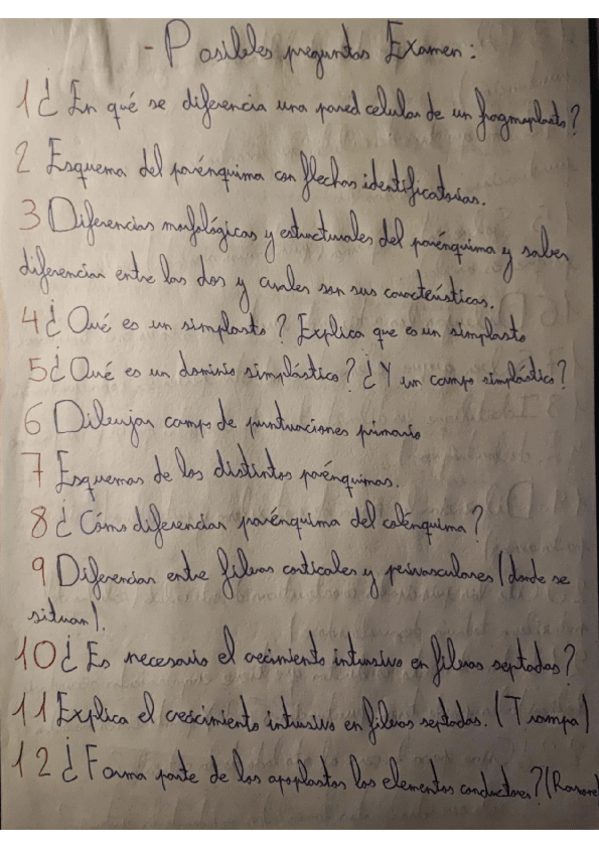 - Posibles preguntas Examen:
1 ¿En qué se diferencia una pared celular de un fragmoplasto?
2 Esquema del parénquima con flechas identificatorias.
3 Diferencias morfológicas y estructurales del parénquima y saber
diferenciar entre las dos y cuales son sus características.
4 ¿Qué es un simplasto? Explica que es un simplasto
5 ¿Qué es un dominio simplástico? ¿Y un campo simplástico?
6 Dibujar campo de puntuaciones primario
7 Esquemas de los distintos parénquimas.
8 ¿Cómo diferenciar parénquima del colénquima?
9 Diferenciar entre fibras corticales y perivasculares (donde se
situan).
10 ¿Es necesario el crecimiento intrusivo en fibras septadas?
11 Explica el crecimiento intrusivo en fibras septadas. (Trampa)
12 ¿Forma parte de los apoplastos los elementos conductores?